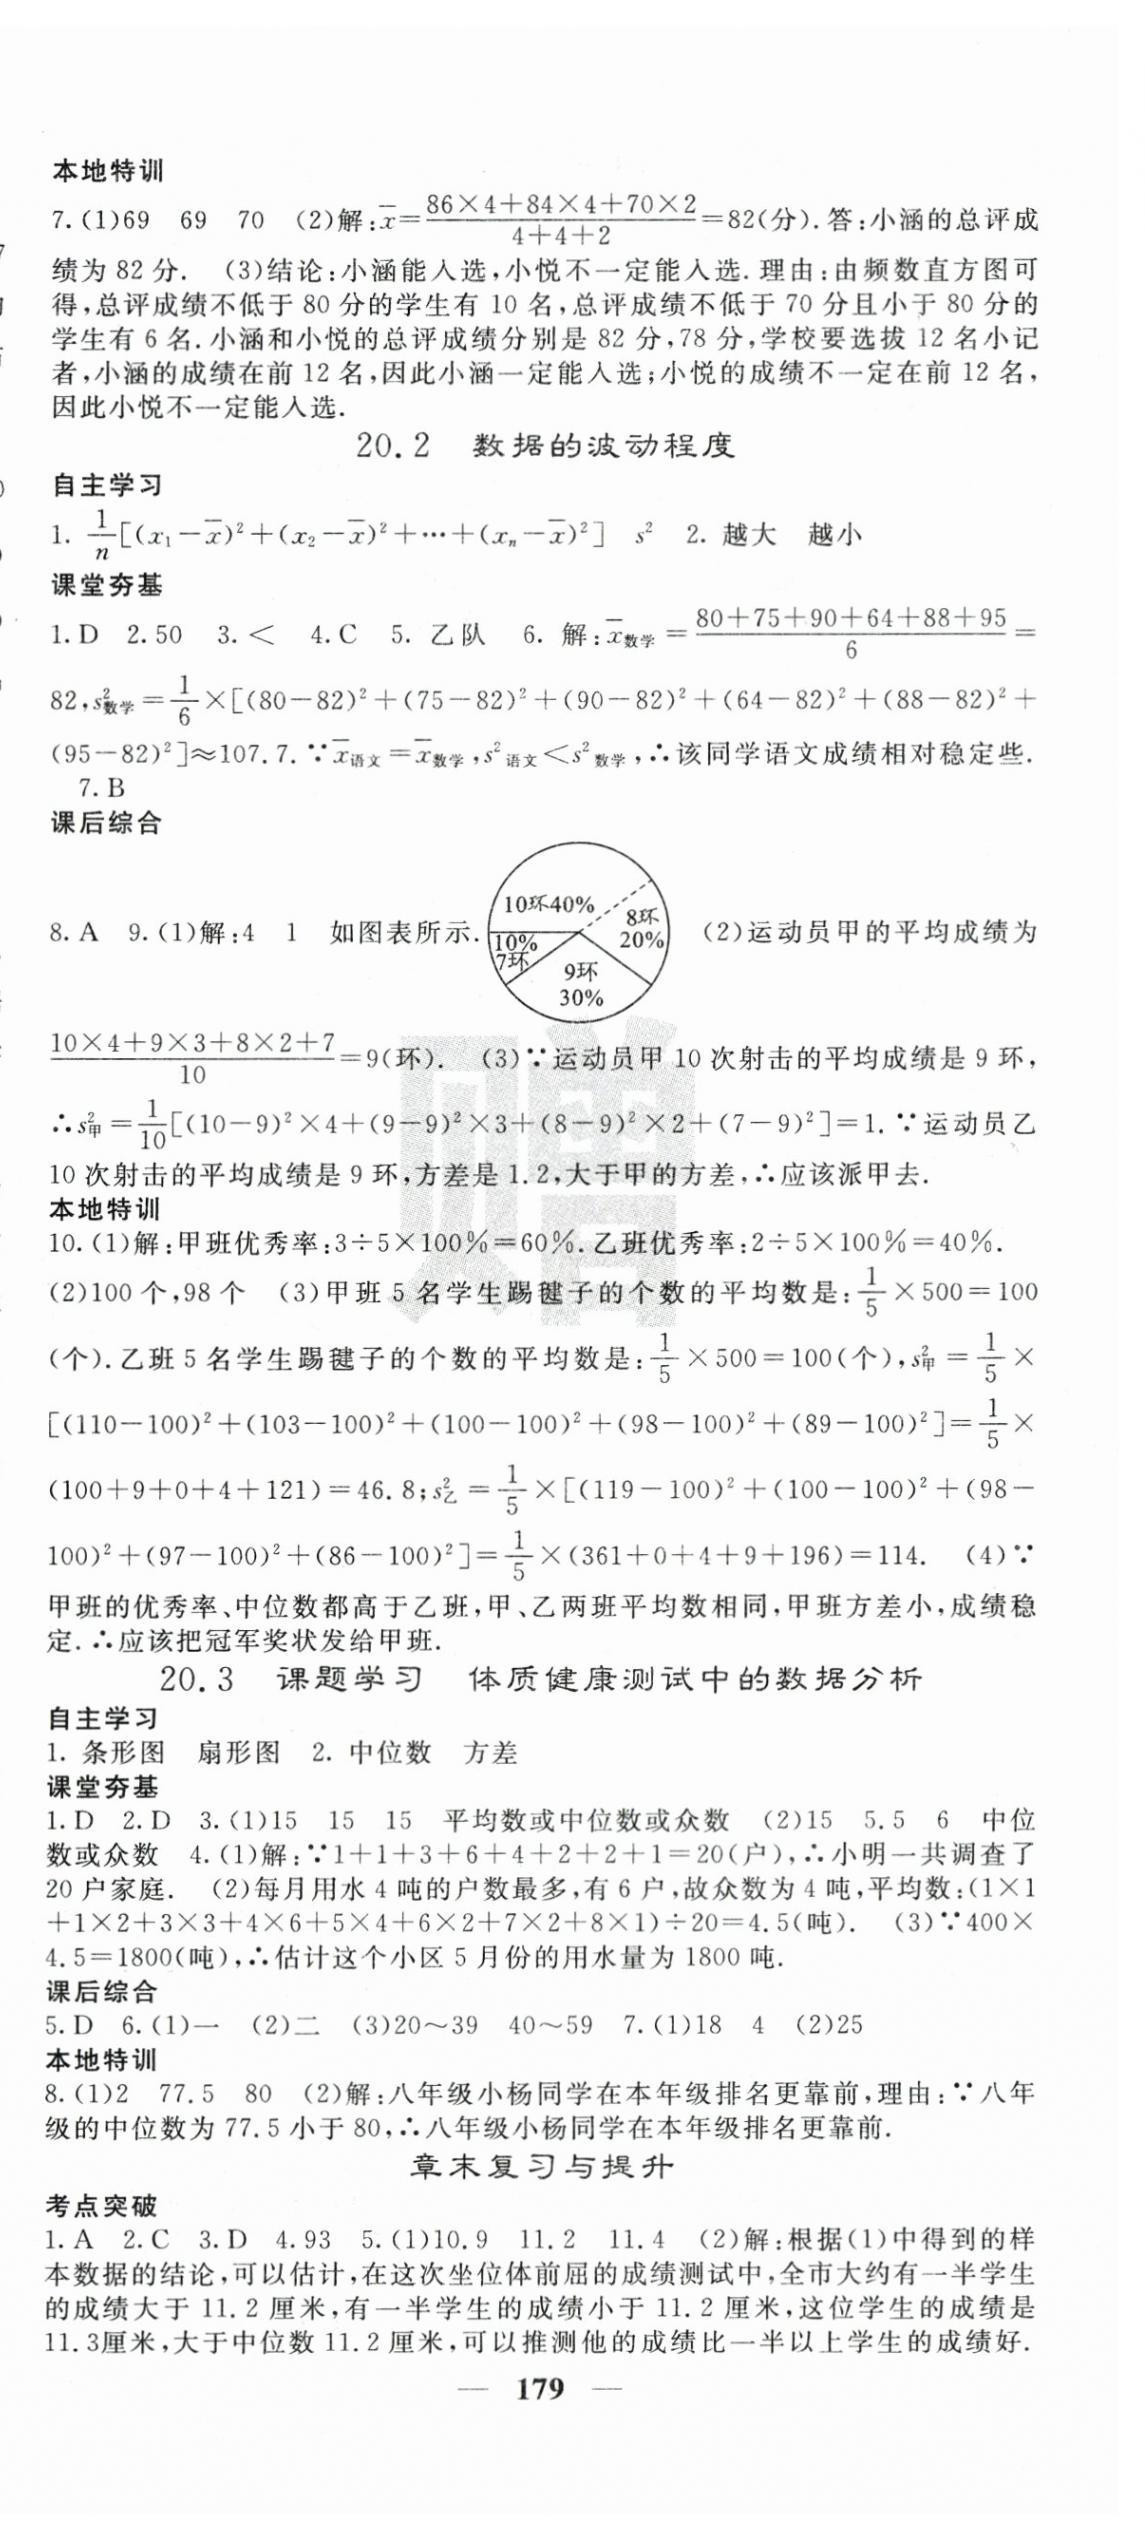 本地特训
7.(1)69 69 70 (2)解:x̄=(86×4+84×4+70×2)/(4+4+2)=82(分).答:小涵的总评成
绩为 82 分. (3)结论:小涵能入选,小悦不一定能入选.理由:由频数直方图可
得,总评成绩不低于 80 分的学生有 10 名,总评成绩不低于 70 分且小于 80 分的
学生有 6 名.小涵和小悦的总评成绩分别是 82 分,78 分,学校要选拔 12 名小记
者,小涵的成绩在前 12 名,因此小涵一定能入选;小悦的成绩不一定在前 12 名,
因此小悦不一定能入选.
20.2 数据的波动程度
自主学习
1. 1/n[(x₁-x̄)²+(x₂-x̄)²+…+(xₙ-x̄)²] s² 2. 越大 越小
课堂夯基
1.D 2.50 3.< 4.C 5. 乙队 6. 解:x̄数学=(80+75+90+64+88+95)/6=
82,s²数学=1/6×[(80-82)²+(75-82)²+(90-82)²+(64-82)²+(88-82)²+
(95-82)²]≈107.7.∵x̄语文=x̄数学,s²语文<s²数学,∴该同学语文成绩相对稳定些.
7.B
课后综合
10环40%
8环
20%
10%
7环
9环
30%
8.A 9.(1)解:4 1 如图表所示. (2)运动员甲的平均成绩为
(10×4+9×3+8×2+7)/10=9(环). (3)∵运动员甲 10 次射击的平均成绩是 9 环,
∴s²甲=1/10[(10-9)²×4+(9-9)²×3+(8-9)²×2+(7-9)²]=1.∵运动员乙
10 次射击的平均成绩是 9 环,方差是 1.2,大于甲的方差,∴应该派甲去.
本地特训
10.(1)解:甲班优秀率:3÷5×100%=60%.乙班优秀率:2÷5×100%=40%.
(2)100 个,98 个 (3)甲班 5 名学生踢毽子的个数的平均数是:1/5×500=100
(个).乙班 5 名学生踢毽子的个数的平均数是:1/5×500=100(个),s²甲=1/5×
[(110-100)²+(103-100)²+(100-100)²+(98-100)²+(89-100)²]=1/5×
(100+9+0+4+121)=46.8;s²乙=1/5×[(119-100)²+(100-100)²+(98-
100)²+(97-100)²+(86-100)²]=1/5×(361+0+4+9+196)=114. (4)∵
甲班的优秀率、中位数都高于乙班,甲、乙两班平均数相同,甲班方差小,成绩稳
定.∴应该把冠军奖状发给甲班.
20.3 课题学习 体质健康测试中的数据分析
自主学习
1. 条形图 扇形图 2. 中位数 方差
课堂夯基
1.D 2.D 3.(1)15 15 15 平均数或中位数或众数 (2)15 5.5 6 中位
数或众数 4.(1)解:∵1+1+3+6+4+2+2+1=20(户),∴小明一共调查了
20 户家庭. (2)每月用水 4 吨的户数最多,有 6 户,故众数为 4 吨,平均数:(1×1
+1×2+3×3+4×6+5×4+6×2+7×2+8×1)÷20=4.5(吨). (3)∵400×
4.5=1800(吨),∴估计这个小区 5 月份的用水量为 1800 吨.
课后综合
5.D 6.(1)一 (2)二 (3)20~39 40~59 7.(1)18 4 (2)25
本地特训
8.(1)2 77.5 80 (2)解:八年级小杨同学在本年级排名更靠前,理由:∵八年
级的中位数为 77.5 小于 80,∴八年级小杨同学在本年级排名更靠前.
章末复习与提升
考点突破
1.A 2.C 3.D 4.93 5.(1)10.9 11.2 11.4 (2)解:根据(1)中得到的样
本数据的结论,可以估计,在这次坐位体前屈的成绩测试中,全市大约有一半学生
的成绩大于 11.2 厘米,有一半学生的成绩小于 11.2 厘米,这位学生的成绩是
11.3厘米,大于中位数 11.2 厘米,可以推测他的成绩比一半以上学生的成绩好.
— 179 —